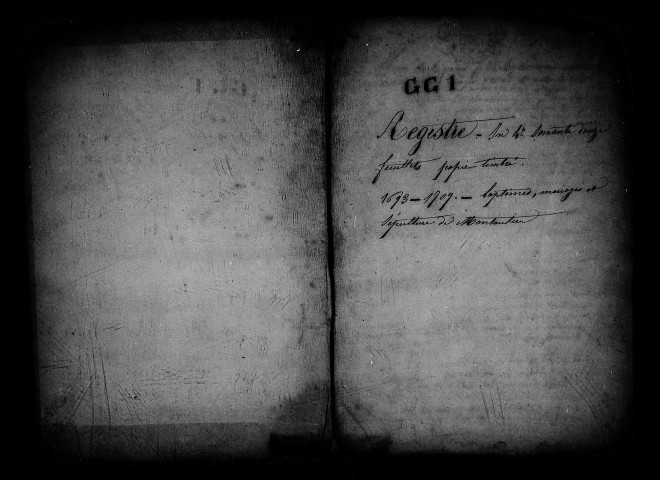 GG 1
Registre - In 4° Soixante douze
feuillets papier timbré.
1693 - 1709. - baptêmes, mariages et
Sépulture de